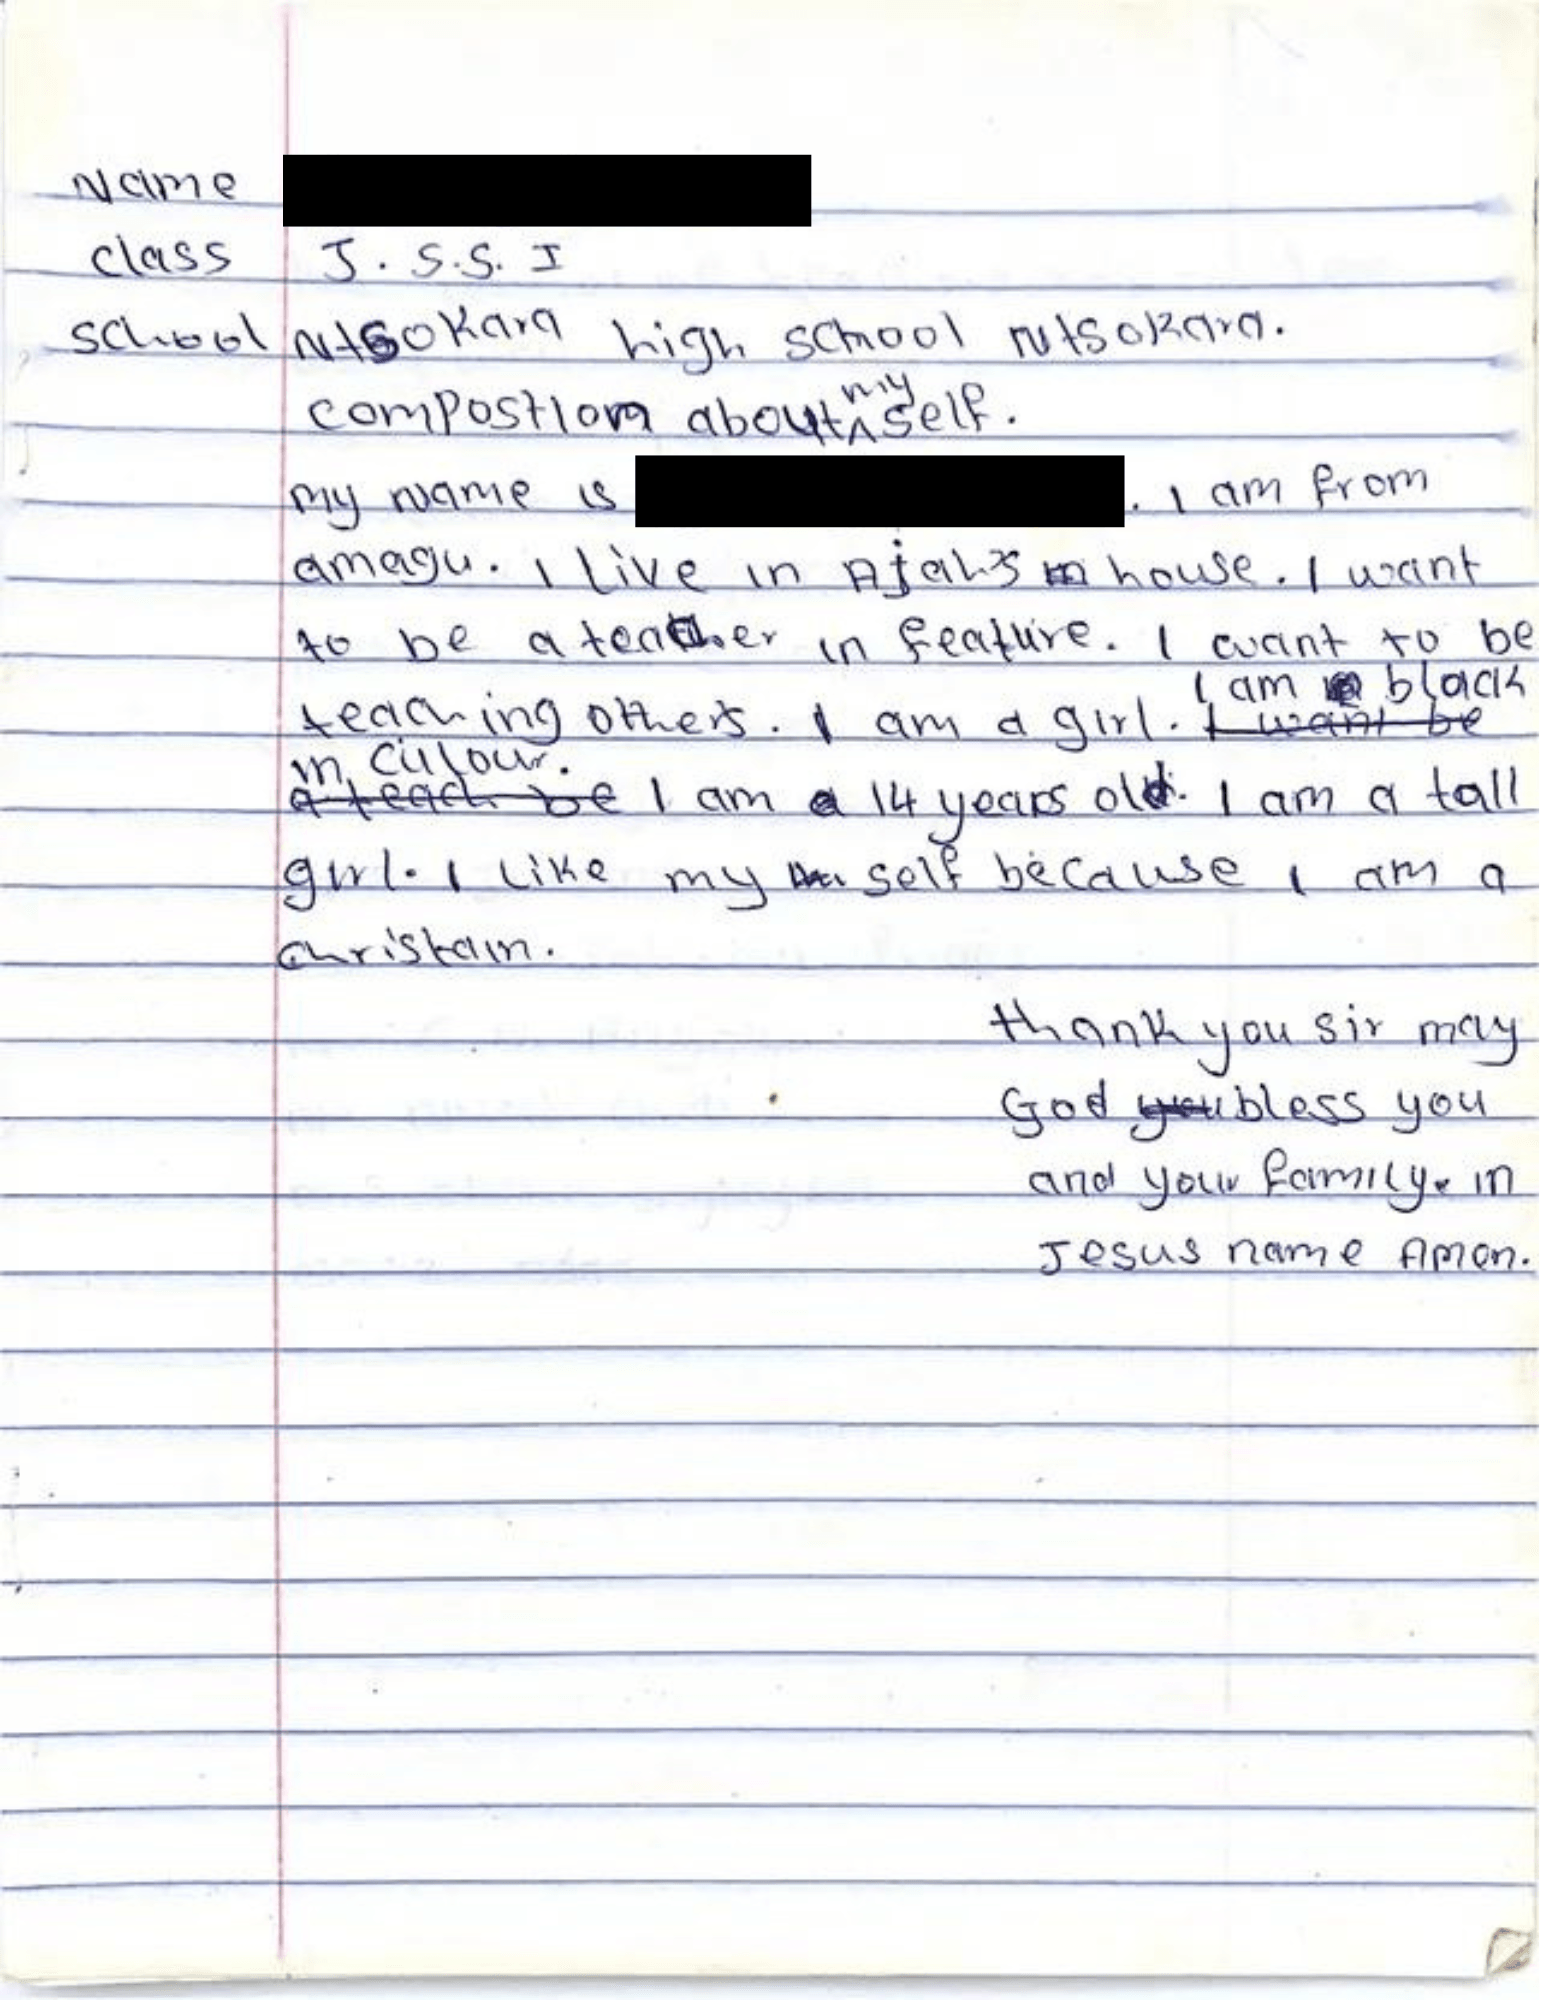 Name
class J. S.S. I
school Ntsokara high school Ntsokara.
compostion about my self.
my name is . I am from
amagu. I live in Ajah's house. I want
to be a teacher in feature. I want to be
teaching others. I am a girl. I want be I am black
in cullour.
a teach be I am a 14 years old. I am a tall
girl. I like my self because I am a
christain.
thank you sir may
God you bless you
and your family. in
Jesus name Amen.